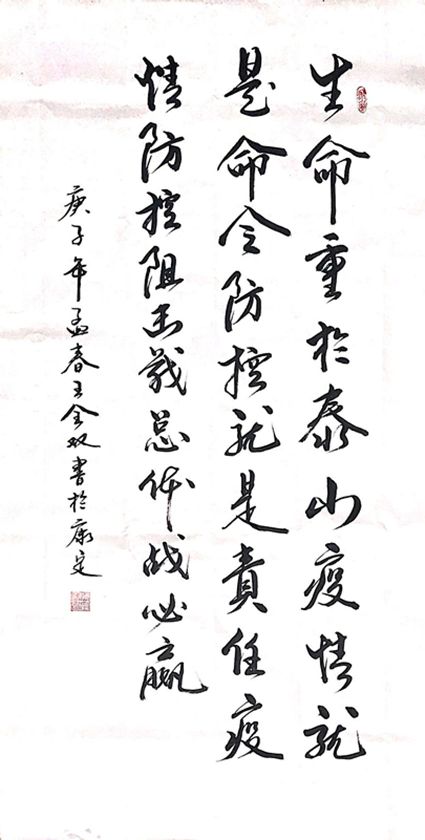 生命重於泰山疫情就
是命令防控就是責任疫
情防控阻击戰总体战必赢
庚子年孟春王全双書於康定